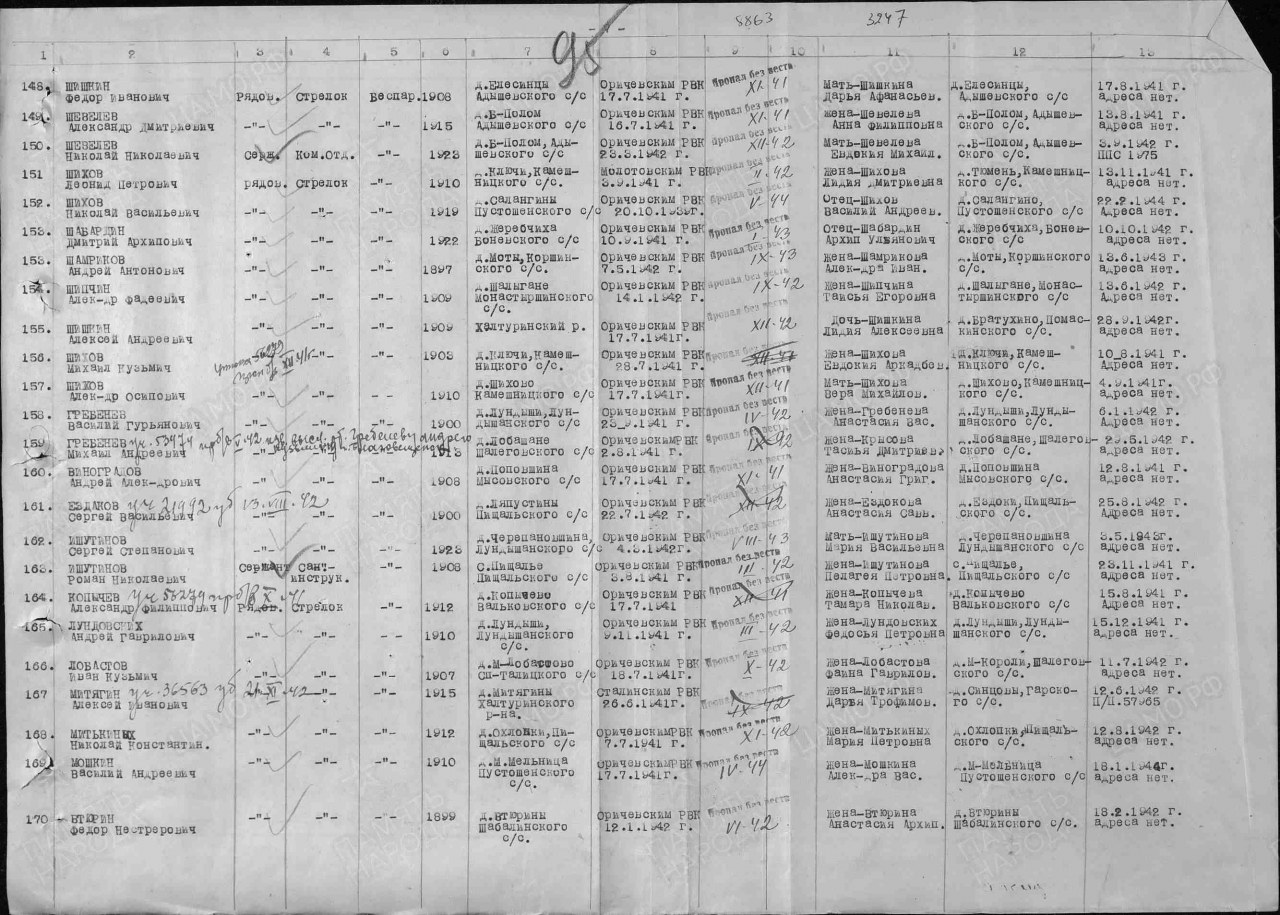 8863 3247
95
1 2 3 4 5 6 7 8 9 10 11 12 13
148. ШИШКИН д.Елесинцы Оричевским РВК Пропал без вести Мать-Шишкина д.Елесинцы, 17.8.1941 г.
Федор Иванович Рядов. Стрелок Беспар. 1908 Адышевского с/с 17.7.1941 г. XI-41 Дарья Афанасьев. Адышевского с/с адреса нет.
149. ШЕВЕЛЕВ д.Б-Полом Оричевским РВК Пропал без вести Жена-Шевелева д.Б-Полом, Адышев- 13.8.1941 г.
Александр Дмитриевич -"- -"- -"- 1915 Адышевского с/с 16.7.1941 г. XI-41 Анна Филипповна ского с/с. адреса нет.
150. ШЕВЕЛЕВ д.Б-Полом, Ады- Оричевским РВК Пропал без вести Мать-Шевелева д.Б-Полом, Адышев- 3.9.1942 г.
Николай Николаевич Серж. Ком.Отд. -"- 1923 шевского с/с 23.3.1942 г. XII-42 Евдокия Михаил. ского с/с. ППС 1975
151 ШИХОВ д.Ключи,Камеш- Молотовским РВК Пропал без вести Жена-Шихова д.Тюмень,Камешниц- 13.11.1941 г.
Леонид Петрович рядов. Стрелок -"- 1910 ницкого с/с. 3.9.1941 г. II-42 Лидия Дмитриевна кого с/с. адреса нет.
152. ШИХОВ д.Салангины Оричевским РВК Пропал без вести Отец-Шихов д.Салангино, 22.2.1944 г.
Николай Васильевич -"- -"- -"- 1919 Пустошенского с/с 20.10.1939г. V-44 Василий Андреев. Пустошенского с/с Адреса нет.
153. ШАБАРДИН д.Жеребчиха Оричевским РВК Пропал без вести Отец-Шабардин д.Жеребчиха,Бонев- 10.10.1942 г.
Дмитрий Архипович -"- -"- -"- 1922 Боневского с/с 10.9.1941 г. I-43 Архип Ульянович ского с/с адреса нет.
153. ШАМРИКОВ д.Моты,Коршин- Оричевским РВК Пропал без вести Жена-Шамрикова д.Моты,Коршинского 13.6.1943 г.
Андрей Антонович -"- -"- -"- 1897 ского с/с. 7.5.1942 г. IX-43 Алек-дра Иван. с/с. адреса нет.
154. ШИПЧИН д.Шалыгане Оричевским РВК Пропал без вести Жена-Шипчина д.Шалыгане,Монас- 13.6.1942 г.
Алек-др Фадеевич -"- -"- -"- 1909 Монастыршинского 14.1.1942 г. IX-42 Таисья Егоровна тыршинского с/с адреса нет.
с/с.
155. ШИШКИН -"- -"- -"- 1909 Халтуринский р. Оричевским РВК Пропал без вести Дочь-Шишкина д.Братухино,Помас- 28.9.1942г.
Алексей Андреевич 17.7.1941г. XII-42 Лидия Алексеевна кинского с/с. адреса нет.
156. ШИХОВ -"- -"- 1903 д.Ключи,Камеш- Оричевским РВК Пропал без вести Жена-Шихова д.Ключи,Камеш- 10.8.1941 г.
Михаил Кузьмич XII 41г ницкого с/с. 28.7.1941 г. Евдокия Аркадьев. ницкого с/с. адреса нет.
157. ШИХОВ д.Шихово Оричевским РВК Пропал без вести Мать-Шихова д.Шихово,Камешниц- 4.9.1941г.
Алек-др Осипович -"- -"- -"- 1910 Камешницкого с/с 17.7.1941г. XII-41 Вера Михайлов. кого с/с. адреса нет.
158. ГРЕБЕНЕВ д.Лундыши,Лун- Оричевским РВК Пропал без вести Жена-Гребенева д.Лундыши,Лунды- 6.1.1942 г.
Василий Гурьянович -"- -"- -"- 1900 дышанского с/с 23.9.1941 г. IV-42 Анастасия Вас. шанского с/с. адреса нет.
159 ГРЕБЕНЕВ уч.53474 пр б/в V-42 изв. высл. об. Гребеневу Андрею д.Лобашане ОричевскимРВК Пропал без вести Жена-Крысова д.Лобашане,Шалегов- 29.5.1942 г.
Михаил Андреевич -"- 1913 Шалеговского с/с 2.8.1941 г. IX-42 Таисья Дмитриев. ского с/с. адреса нет.
160. ВИНОГРАДОВ д.Поповщина Оричевским РВК Пропал без вести Жена-Виноградова д.Поповщина 12.8.1941 г.
Андрей Алек-дрович -"- -"- -"- 1908 Мысовского с/с 17.7.1941 г. XI-41 Анастасия Григ. Мысовского с/с. адреса нет.
161. ЕЗДАКОВ уч 21992 уб 13-VIII-42 д.Ляпустины Оричевским РВК Пропал без вести Жена-Ездокова д.Ездоки,Пищаль- 25.8.1942 г.
Сергей Васильевич -"- -"- -"- 1900 Пищальского с/с 22.7.1942 г. Анастасия Савв. ского с/с. Адреса нет.
162. ИШУТИНОВ д.Черепановшина, Оричевским РВК Пропал без вести Мать-Ишутинова д.Черепановшина 3.5.1943г.
Сергей Степанович -"- -"- -"- 1923 Лундышанского с/с 4.3.1942г. VIII-43 Мария Васильевна Лундышанского с/с адреса нет.
163. ИШУТИНОВ Сержант Сан- -"- 1908 с.Пищалье Оричевским РВК Пропал без вести Жена-Ишутинова с.Пищалье, 23.11.1941 г.
Роман Николаевич инструк. Пищальского с/с 3.8.1941 г. III-42 Пелагея Петровна Пищальского с/с адреса нет.
164. КОПЫЧЕВ уч 56279 пр б/в X-41 д.Копычево Оричевским РВК Пропал без вести Жена-Копычева д.Копычево 15.8.1941 г.
Александр Филиппович Рядов. Стрелок -"- 1912 Вальковского с/с 17.7.1941 XII-41 Тамара Николав. Вальковского с/с адреса нет.
165. ЛУНДОВСКИХ д.Лундыши, Оричевским РВК Пропал без вести Жена-Лундовских д.Лундыши,Лунды- 15.12.1941 г.
Андрей Гаврилович -"- -"- -"- 1910 Лундышанского 9.11.1941 г. III-42 Федосья Петровна шанского с/с. адреса нет.
с/с.
166. ЛОБАСТОВ д.М-Лобастово Оричевским РВК Пропал без вести Жена-Лобастова д.М-Короли,Шалегов- 11.7.1942 г.
Иван Кузьмич -"- -"- -"- 1907 Сп-Талицкого с/с 18.7.1941г. X-42 Фаина Гаврилов. ского с/с. адреса нет.
167 МИТЯГИН уч.36563 уб 21-XI-42 -"- -"- 1915 д.Митягины Сталинским РВК Пропал без вести Жена-Митягина д.Синцовы,Гарско- 12.6.1942 г.
Алексей Иванович -"- Халтуринского 26.6.1941г. IX-42 Дарья Трофимов. го с/с. П/П.57965
р-на.
168. МИТЬКИНЫХ -"- -"- -"- 1912 д.Охлопки,Пи- ОричевскимРВК Пропал без вести Жена-Митькиных д.Охлопки,Пищаль- 12.8.1942 г.
Николай Константин. щальского с/с 7.7.1941 г. XI-42 Мария Петровна ского с/с. адреса нет.
169. МОШКИН -"- -"- -"- 1910 д.М.Мельница ОричевскимРВК Пропал без вести Жена-Мошкина д.М-Мельница 18.1.1944г.
Василий Андреевич Пустошенского 17.7.1941г. IV-44 Алек-дра Вас. Пустошенского с/с адреса нет.
с/с.
170 ВТЮРИН -"- -"- -"- 1899 д.Втюрины Оричевским РВК Пропал без вести Жена-Втюрина д.Втюрины 18.2.1942 г.
Федор Нестрерович Шабалинского 12.1.1942 г. VI-42 Анастасия Архип. Шабалинского с/с. адреса нет.
с/с.